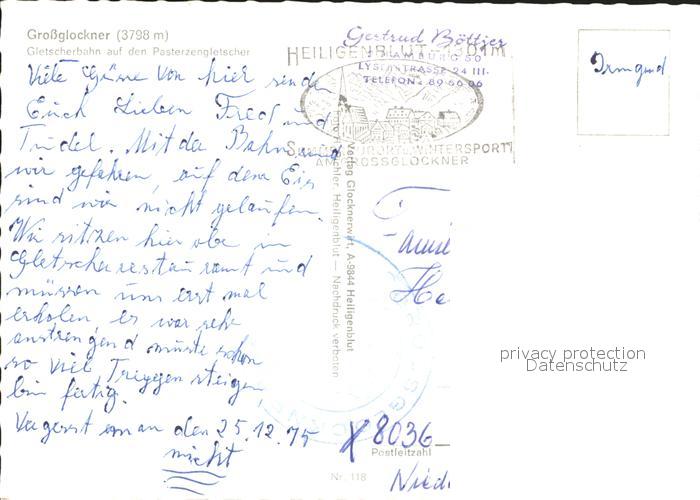 Großglockner (3798 m)
Gletscherbahn auf den Pasterzengletscher
Viele Grüsse von hier senden
Euch Lieben Fred und
Trudel. Mit der Bahn sind
wir gefahren, auf dem Eis
sind wir nicht gelaufen.
Wir sitzen hier oben im
Gletscherrestaurant und
müssen uns erst mal
erholen, es war sehr
anstrengend müste schon
so viel Treppen steigen,
bin fertig.
Vergesst man den 25.12.75
nicht
Gertrud Böttjer
2 HAMBURG 50
TELEFON: 89 66 06
HEILIGENBLUT 1301m
WINTERSPORT
AM GROSSGLOCKNER
Verlag Glocknerwirt, A-9844 Heiligenblut
Heiligenblut — Nachdruck verboten
Irmgard
Fami
He
8036
Postleitzahl
Nied
Nr. 118
privacy protection
Datenschutz